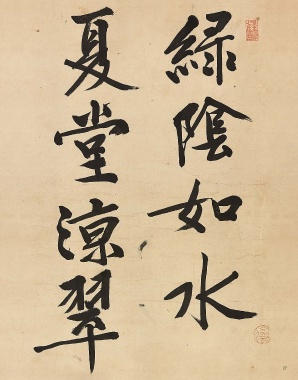 綠陰如水
夏堂凉翠